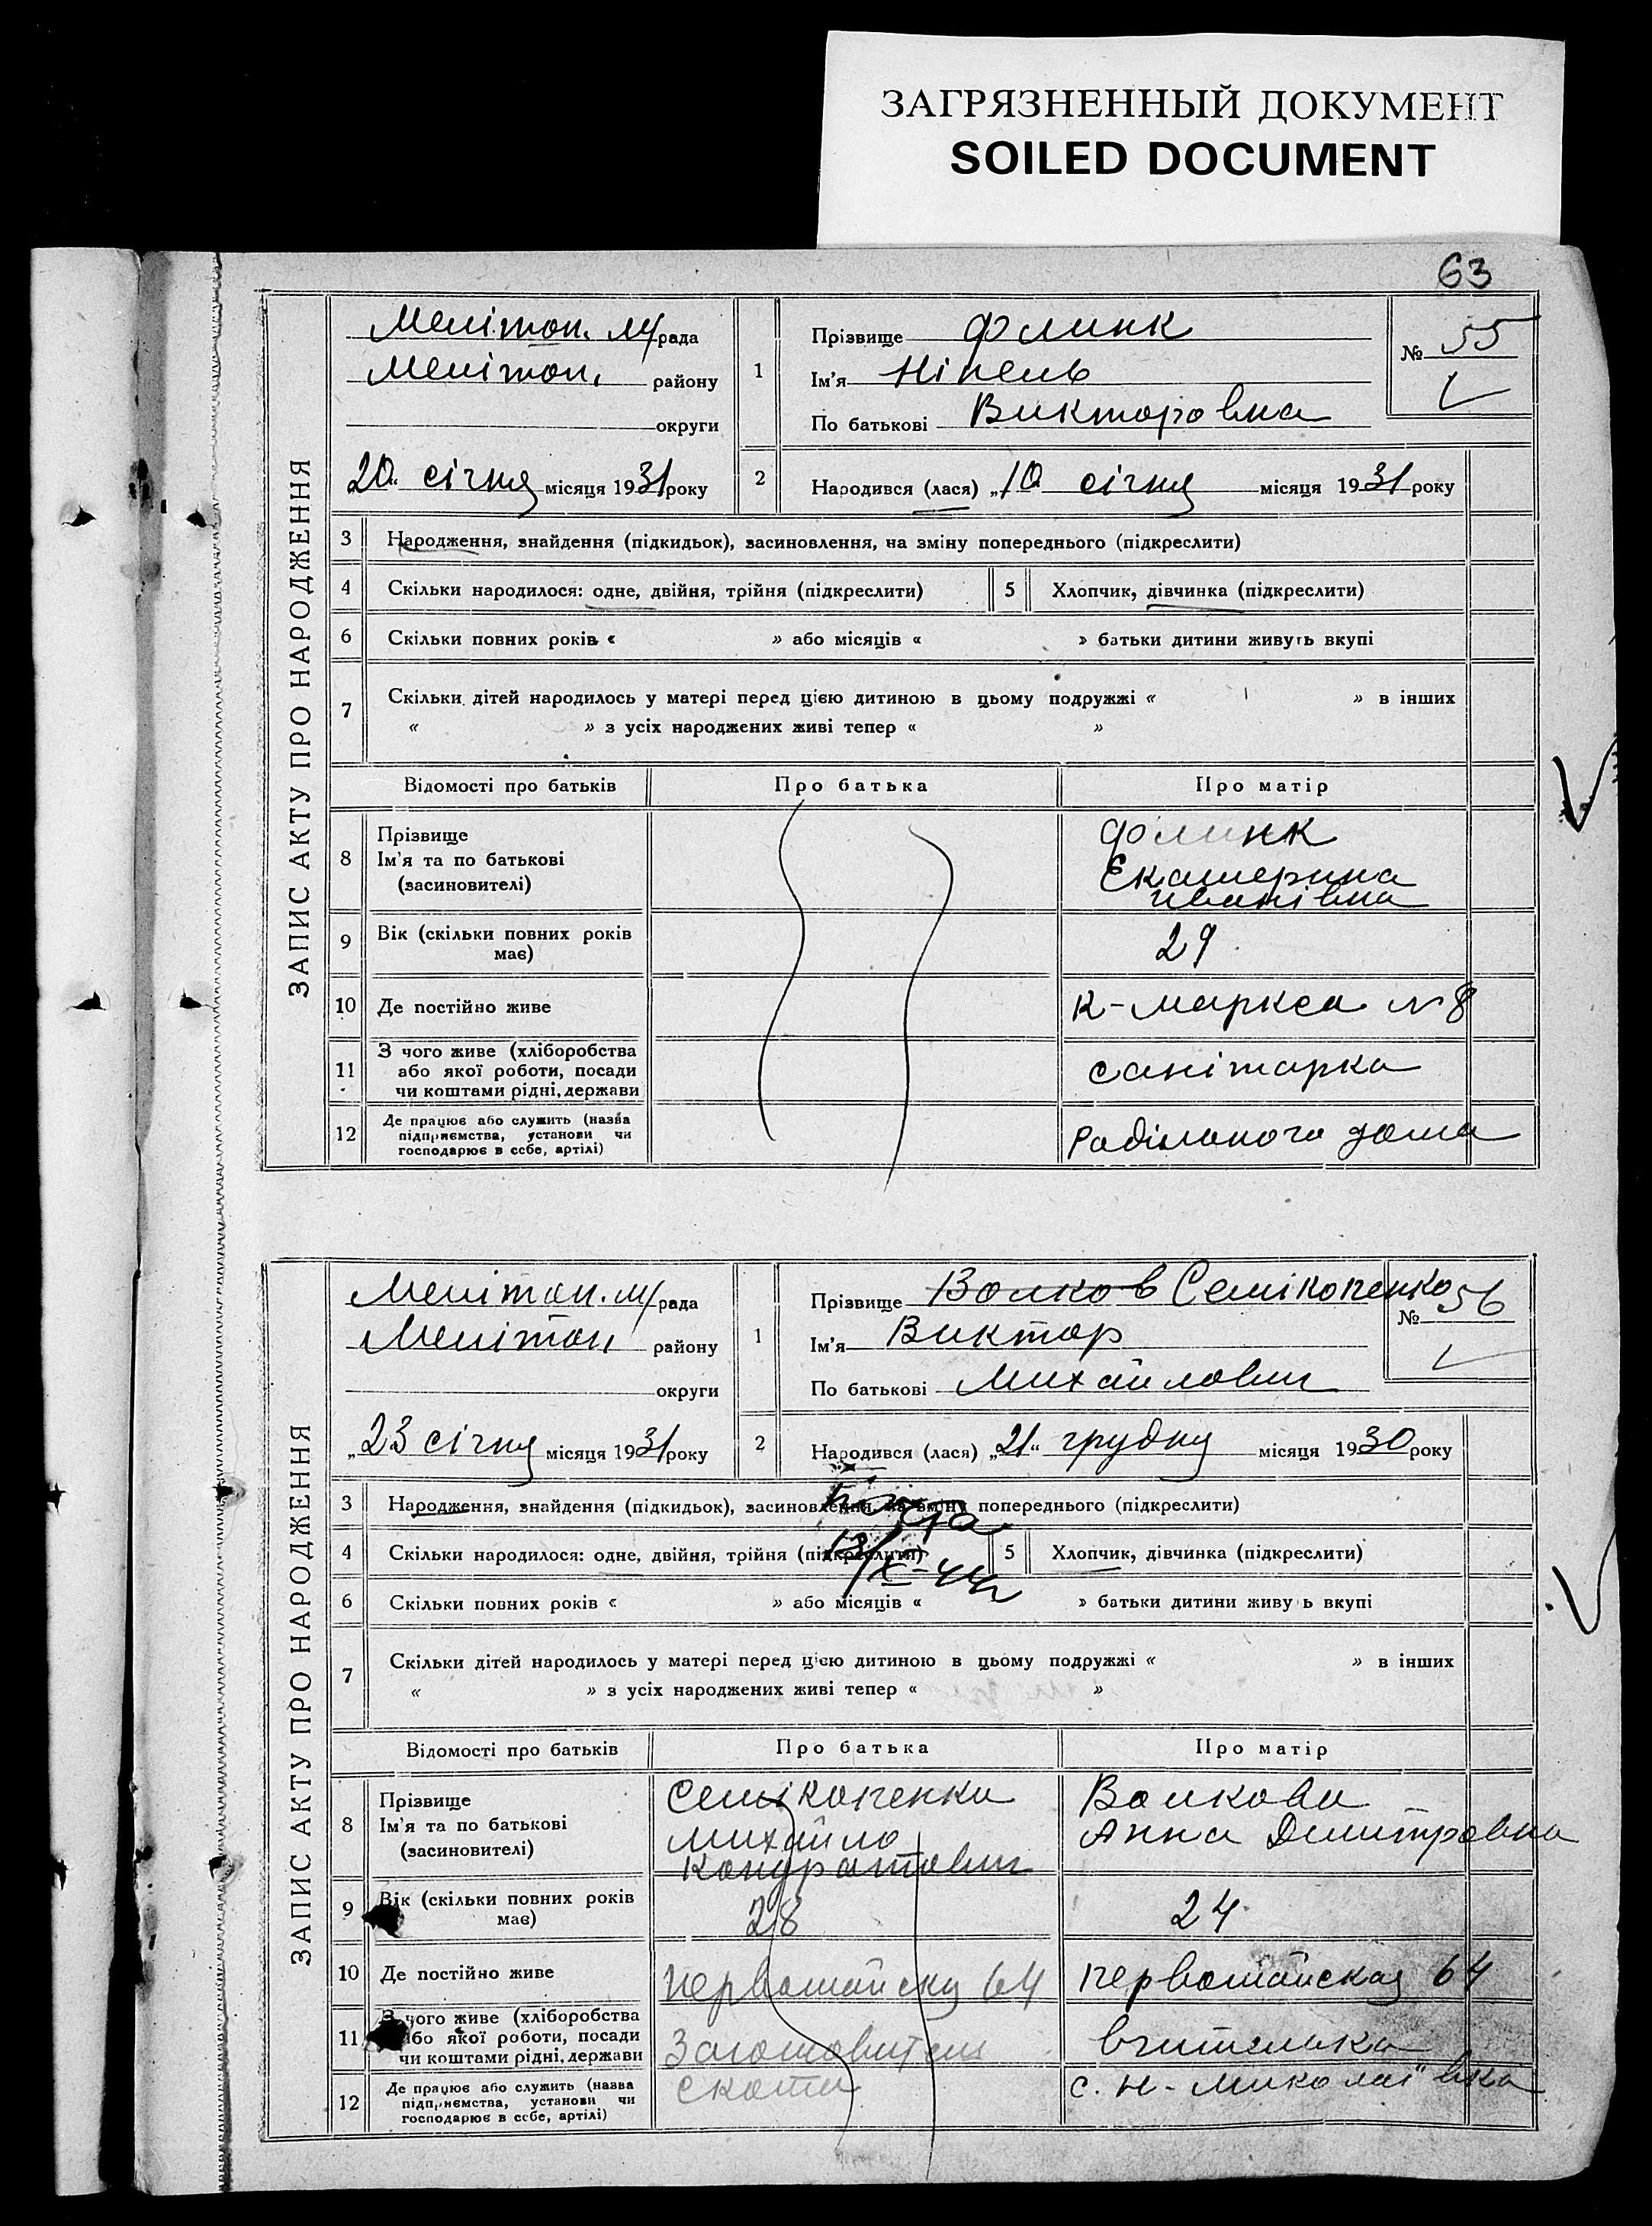 ЗАГРЯЗНЕННЫЙ ДОКУМЕНТ
SOILED DOCUMENT
63
ЗАПИС АКТУ ПРО НАРОДЖЕННЯ
Мелітоп. м/рада
Мелітоп. району
округи
20 січня місяця 1931 року
1
Прізвище Флинк
Ім'я Нінель
По батькові Викторовна
№ 55
2
Народився (лася) „10 січня місяця 1931 року
3 Народження, знайдення (підкидьок), засиновлення, на зміну попереднього (підкреслити)
4 Скільки народилося: одне, двійня, трійня (підкреслити) 5 Хлопчик, дівчинка (підкреслити)
6 Скільки повних років « » або місяців « » батьки дитини живуть вкупі
7 Скільки дітей народилось у матері перед цією дитиною в цьому подружжі « » в інших
« » з усіх народжених живі тепер « »
Відомості про батьків Про батька Про матір
8 Прізвище
Ім'я та по батькові
(засиновителі)
Флинк
Екатерина
Иванівна
9 Вік (скільки повних років
має)
29
10 Де постійно живе К-Маркса №8
11 З чого живе (хліборобства
або якої роботи, посади
чи коштами рідні, держави
санітарка
12 Де працює або служить (назва
підприємства, установи чи
господарює в себе, артілі)
Радільного дома
ЗАПИС АКТУ ПРО НАРОДЖЕННЯ
Мелітоп. м/рада
Мелітоп. району
округи
„23 січня місяця 1931 року
1
Прізвище Волков Семікопенко
Ім'я Виктор
По батькові Михайлович
№ 56
2
Народився (лася) „21“ грудня місяця 1930 року
3 Народження, знайдення (підкидьок), засиновлення, на зміну попереднього (підкреслити)
4 Скільки народилося: одне, двійня, трійня (підкреслити) 5 Хлопчик, дівчинка (підкреслити)
13/X-44
6 Скільки повних років « » або місяців « » батьки дитини живу ь вкупі
7 Скільки дітей народилось у матері перед цією дитиною в цьому подружжі « » в інших
« » з усіх народжених живі тепер « »
Відомості про батьків Про батька Про матір
8 Прізвище
Ім'я та по батькові
(засиновителі)
Семікопенко
Михайло
Кондратович
Волкова
Анна Димитровна
9 Вік (скільки повних років
має)
28
24
10 Де постійно живе Первомайску 64 Первомайская 64
11 З чого живе (хліборобства
або якої роботи, посади
чи коштами рідні, держави
Заготовитель
вчителька
12 Де працює або служить (назва
підприємства, установи чи
господарює в себе, артілі)
скота
с. Н-Миколаївка